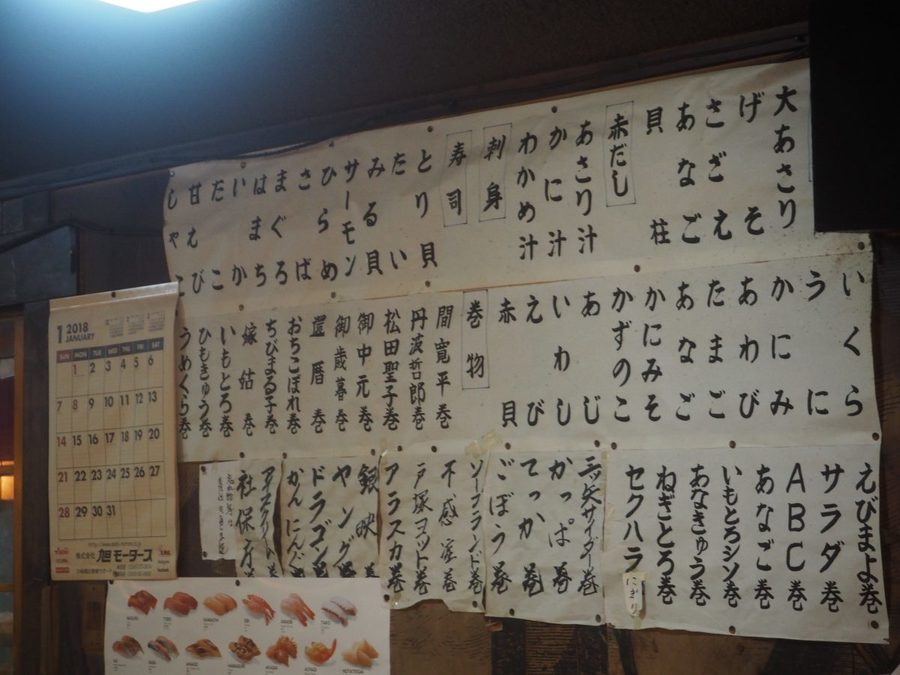 大あさり
げそ
さざえ
あなご
貝柱
赤だし
あさり汁
かに汁
わかめ汁
刺身
寿司
とり貝
たい
みる貝
サーモン
ひらめ
さば
まぐろ
はまち
いか
たこ
甘えび
しゃこ
いくら
うに
かにみ
あわび
たまご
あなご
かにみそ
かずのこ
あじ
いわし
えび
赤貝
巻物
間寛平巻
丹波哲郎巻
松田聖子巻
御中元巻
御歳暮巻
還暦巻
おちこぼれ巻
ちびまる子巻
嫁姑巻
いもとろ巻
ひもきゅう巻
うめくら巻
えびまよ巻
サラダ巻
ABC巻
あなご巻
いもとろシソ巻
あなきゅう巻
ねぎとろ巻
セクハラ
にぎり
三ツ矢サイダー巻
かっぱ巻
てっか巻
ごぼう巻
ソープランド巻
不感症巻
戸塚ヨット巻
アラスカ巻
銀映巻
ヤング巻
ドラゴン巻
かんにんぶ
社保庁
1 2018
JANUARY
SUN MON TUE WED THU FRI SAT
1 2 3 4 5 6
7 8 9 10 11 12 13
14 15 16 17 18 19 20
21 22 23 24 25 26 27
28 29 30 31
株式会社 旭モータース